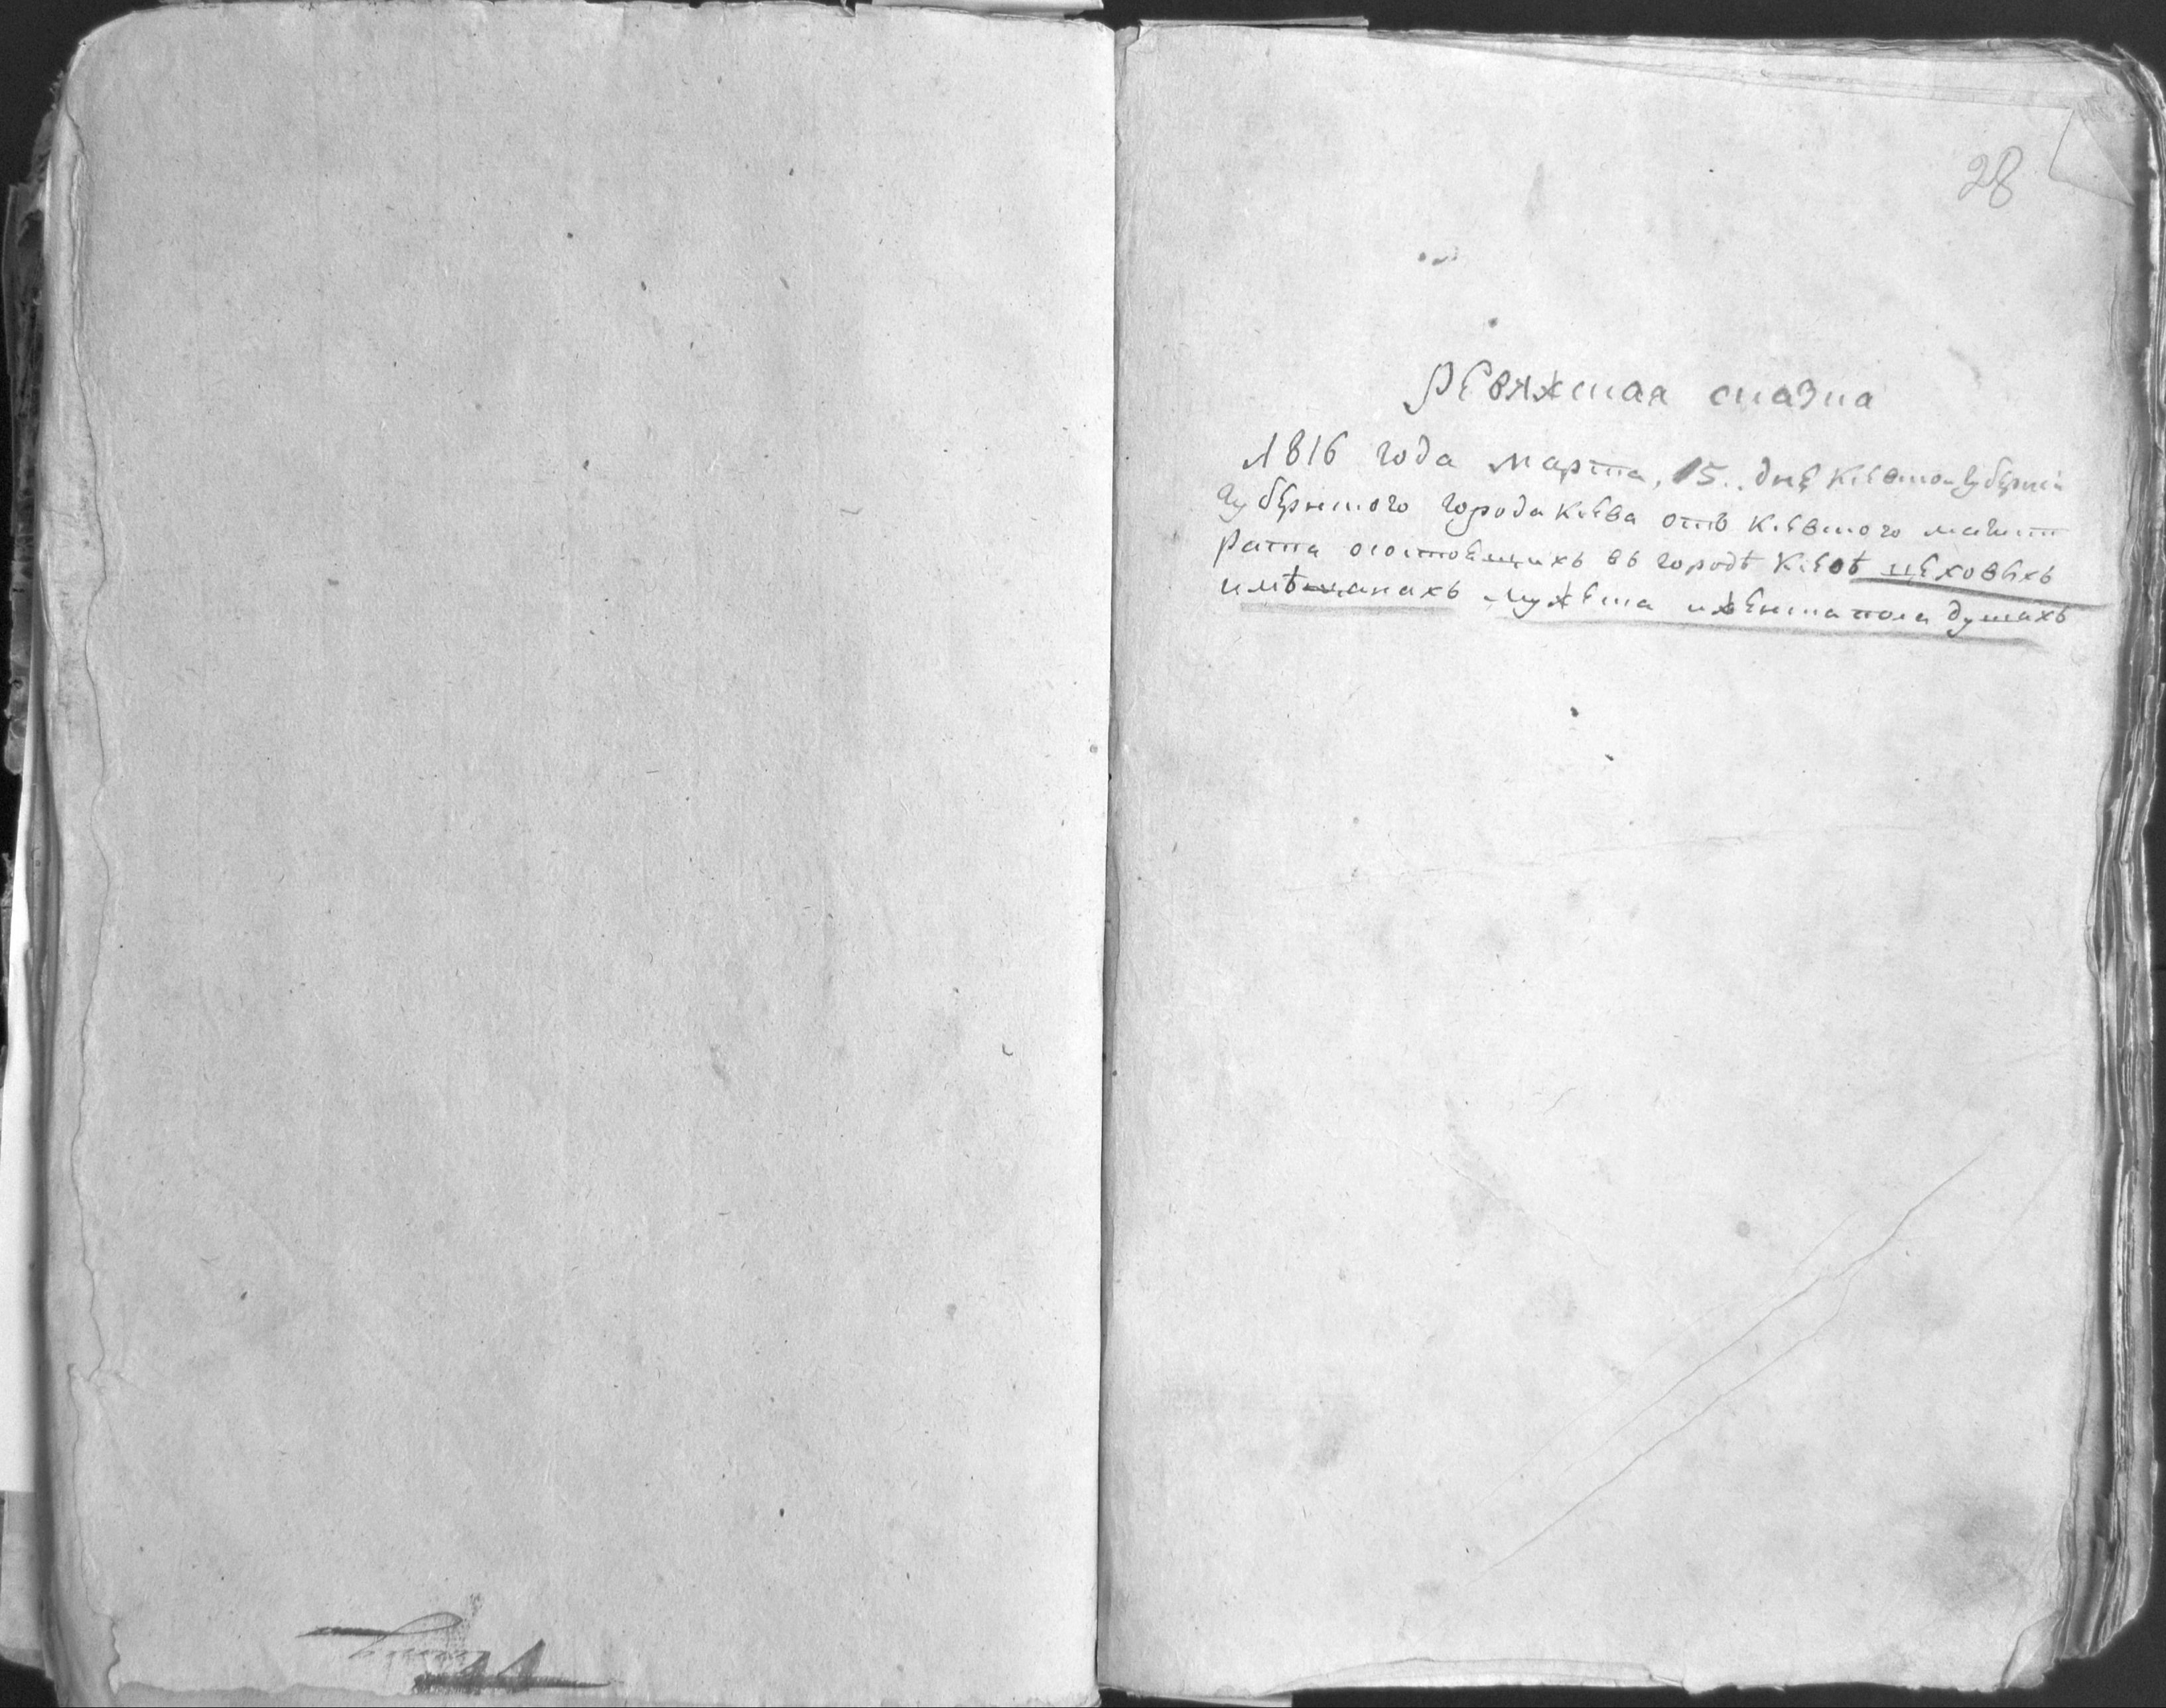 28
Ревижская сказка
1816 года марта, 15. дня Кіевской губерніи
губернского города Кіева отъ Кіевского магист
рата о состоящихъ въ городѣ Кіевѣ цеховыхъ
и мѣщанахъ мужеска и женска пола душахъ